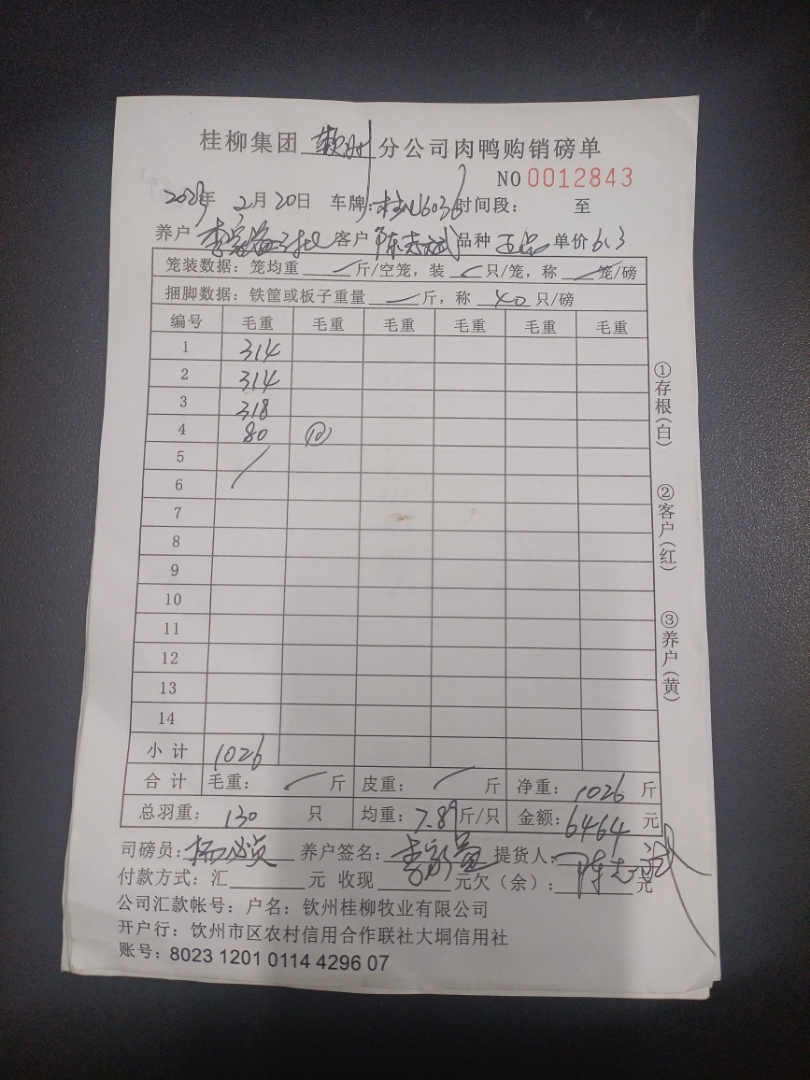 桂柳集团 钦州 分公司肉鸭购销磅单
NO 0012843
年 2月20日 车牌: 时间段: 至
养户 客户 陈志斌 品种 单价6.3
笼装数据: 笼均重 斤/空笼, 装 只/笼, 称 笼/磅
捆脚数据: 铁筐或板子重量 斤, 称 40 只/磅
编号 毛重 毛重 毛重 毛重 毛重 毛重
1 314
2 314
3 318
4 80 ⑩
5
6
7
8
9
10
11
12
13
14
小计 1026
合计 毛重: 斤 皮重: 斤 净重: 1026 斤
总羽重: 130 只 均重: 7.89 斤/只 金额: 6464 元
司磅员: 养户签名: 提货人: 陈志斌
付款方式: 汇 元 收现 元欠(余): 元
公司汇款帐号: 户名: 钦州桂柳牧业有限公司
开户行: 钦州市区农村信用合作联社大垌信用社
账号: 8023 1201 0114 4296 07
①存根(白)
②客户(红)
③养户(黄)